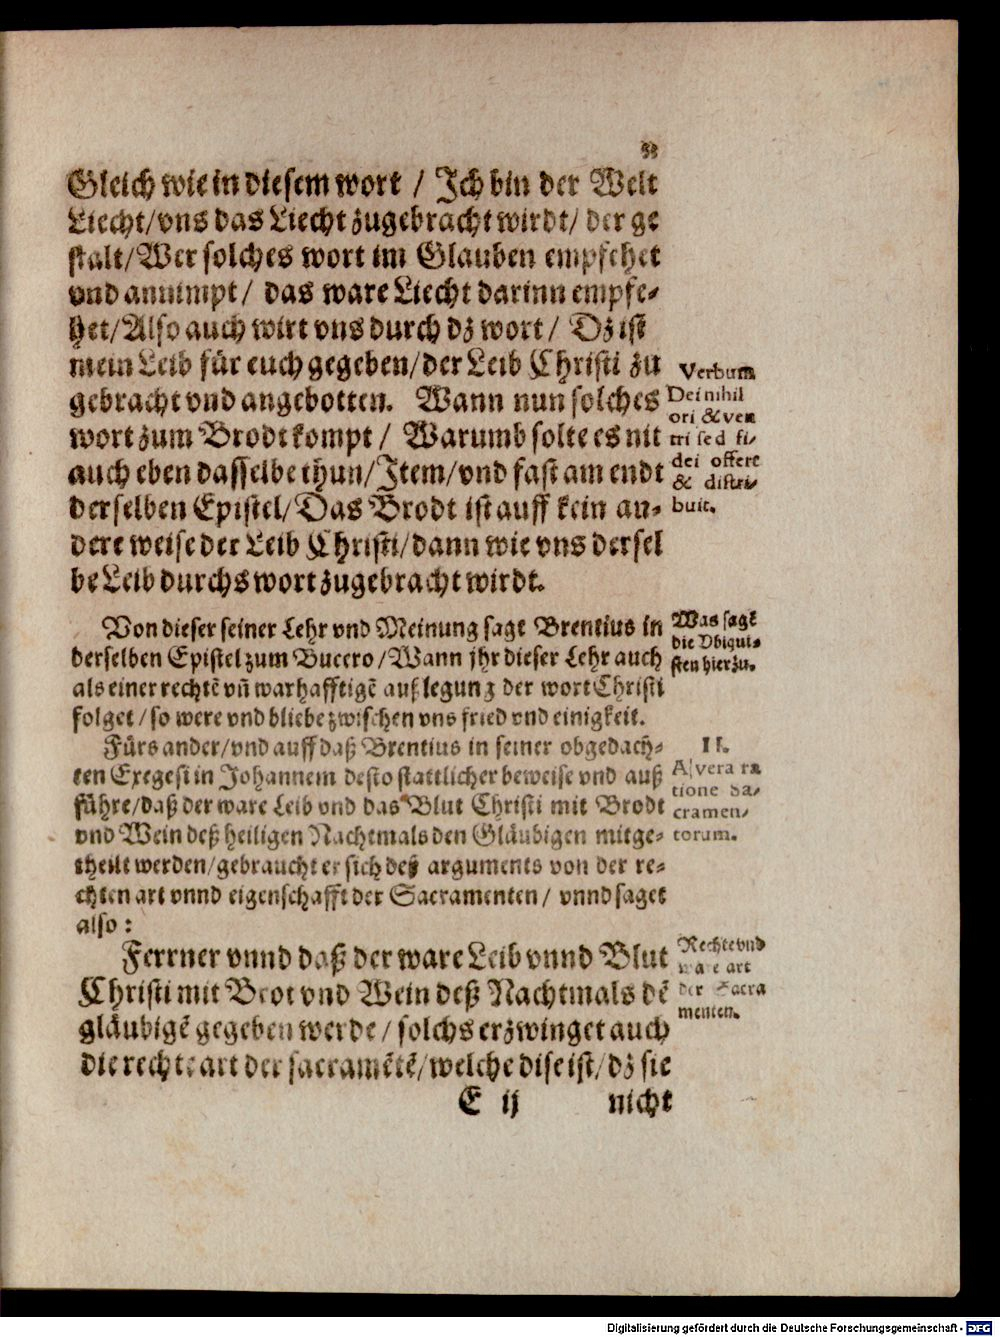 33
Gleich wie in diesem wort / Ich bin der Welt
Liecht/vns das Liecht zugebracht wirdt/ der ge
stalt/Wer solches wort im Glauben empfehet
vnd annimpt/ das ware Liecht darinn empfe-
het/Also auch wirt vns durch dz wort/ Dz ist
mein Leib für euch gegeben/der Leib Christi zu
gebracht vnd angebotten. Wann nun solches
wort zum Brodt kompt / Warumb solte es nit
auch eben dasselbe thun/Item/vnd fast am endt
derselben Epistel/Das Brodt ist auff kein an-
dere weise der Leib Christi/dann wie vns dersel
be Leib durchs wort zugebracht wirdt.
Verbum
Dei nihil
ori & ven
tri sed fi-
dei offert
& distri-
buit.
Von dieser seiner Lehr vnd Meinung sagt Brentius in
derselben Epistel zum Bucero/Wann jhr dieser Lehr auch
als einer rechtẽ vñ warhafftigẽ außlegung der wort Christi
folget/so were vnd bliebe zwischen vns fried vnd einigkeit.
Was sagẽ
die Vbiqui-
sten hierzu.
Fürs ander/vnd auff daß Brentius in seiner obgedach-
ten Exegesi in Johannem desto stattlicher beweise vnd auß
führe/daß der ware Leib vnd das Blut Christi mit Brodt
vnd Wein deß heiligen Nachtmals den Gläubigen mitge-
theilt werden/gebraucht er sich deß arguments von der re-
chten art vnnd eigenschafft der Sacramenten/ vnnd saget
also:
II.
A vera ra
tione sa-
cramen-
torum.
Ferrner vnnd daß der ware Leib vnnd Blut
Christi mit Brot vnd Wein deß Nachtmals dẽ
gläubigẽ gegeben werde/ solchs erzwinget auch
die rechte art der sacramẽtẽ/welche dise ist/dz sie
Rechte vnd
ware art
der Sacra
menten.
E ij nicht
Digitalisierung gefördert durch die Deutsche Forschungsgemeinschaft - DFG